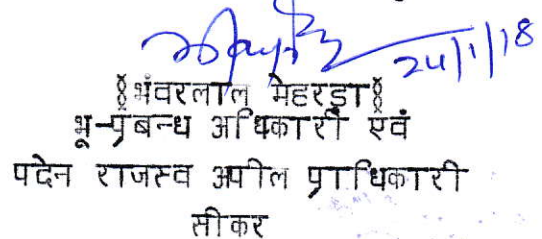 24/1/18
(भंवरलाल मेहरड़ा)
भू-प्रबन्ध अधिकारी एवं
पदेन राजस्व अपील प्राधिकारी
सीकर